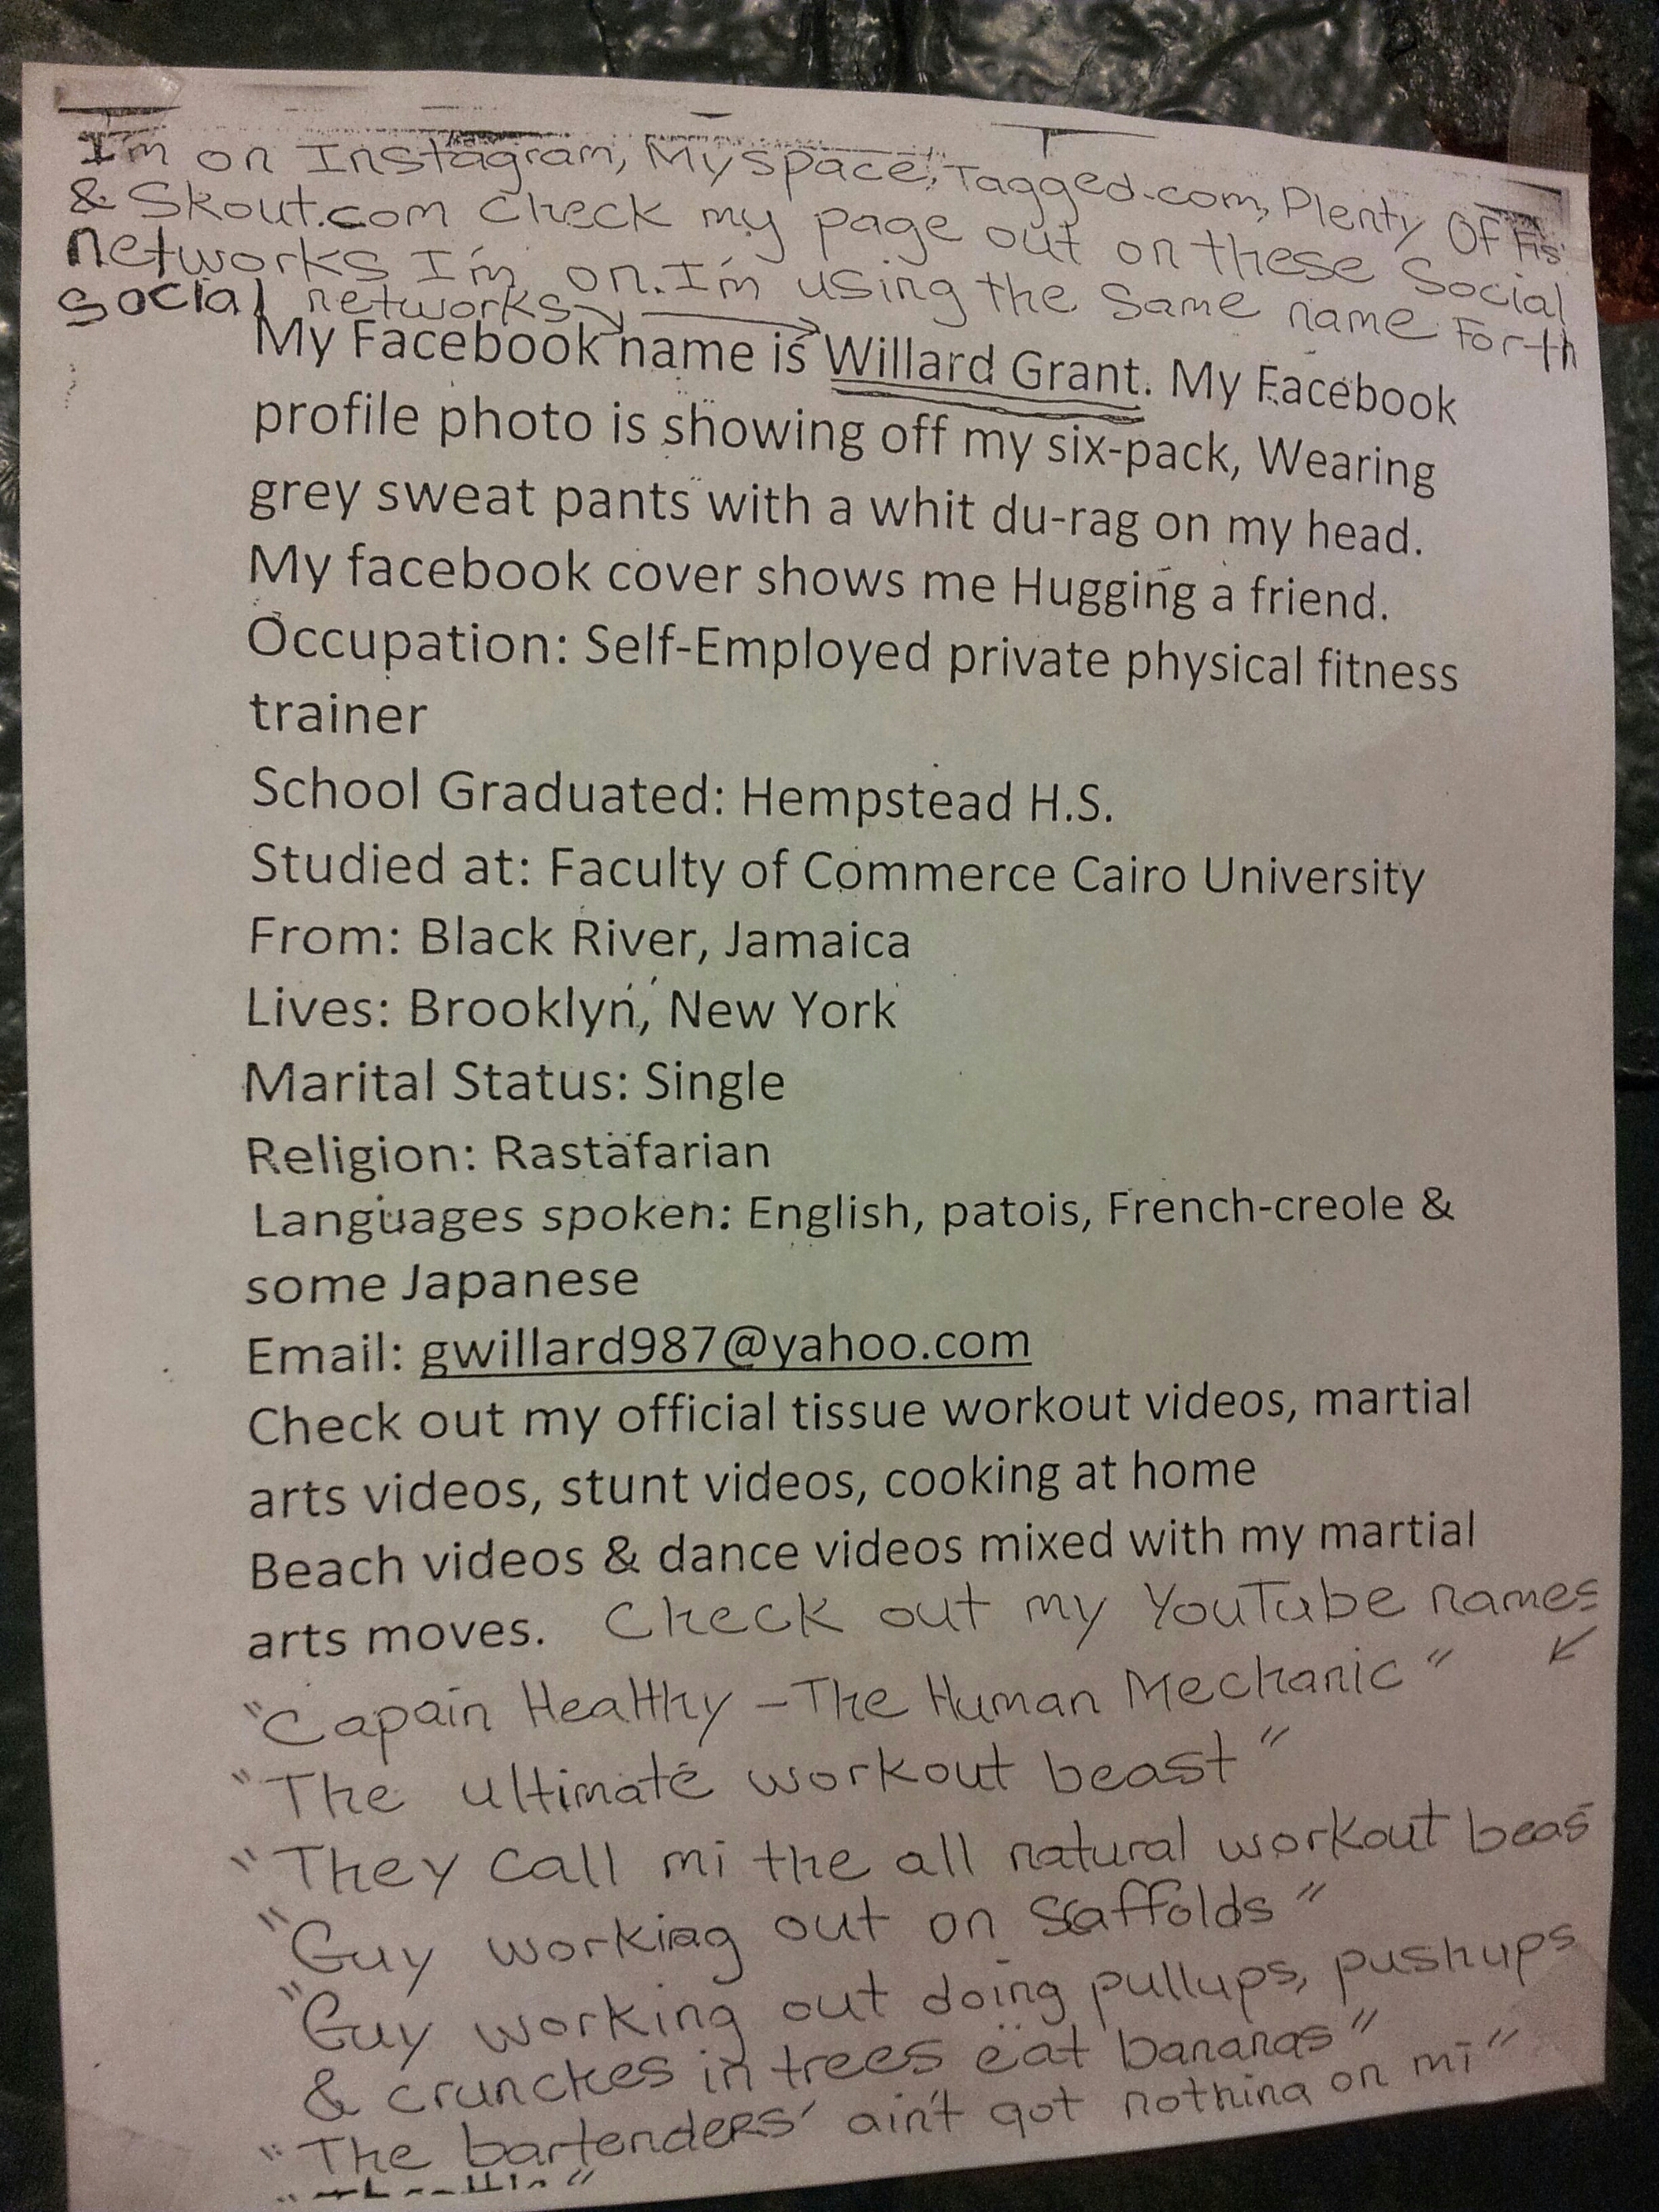 I'm on Instagram, Myspace, Tagged.com, Plenty Of Fis
& Skout.com Check my page out on these Social
networks I'm on. I'm using the same name For th
social networks
My Facebook name is Willard Grant. My Facebook
profile photo is showing off my six-pack, Wearing
grey sweat pants with a whit du-rag on my head.
My facebook cover shows me Hugging a friend.
Occupation: Self-Employed private physical fitness
trainer
School Graduated: Hempstead H.S.
Studied at: Faculty of Commerce Cairo University
From: Black River, Jamaica
Lives: Brooklyn, New York
Marital Status: Single
Religion: Rastafarian
Languages spoken: English, patois, French-creole &
some Japanese
Email: gwillard987@yahoo.com
Check out my official tissue workout videos, martial
arts videos, stunt videos, cooking at home
Beach videos & dance videos mixed with my martial
arts moves. Check out my YouTube names
"Capain Healthy - The Human Mechanic"
"The ultimate workout beast"
"They call mi the all natural workout beas
"Guy working out on scaffolds"
"Guy working out doing pullups, pushups
& crunches in trees eat bananas"
"The bartenders' ain't got nothing on mi"